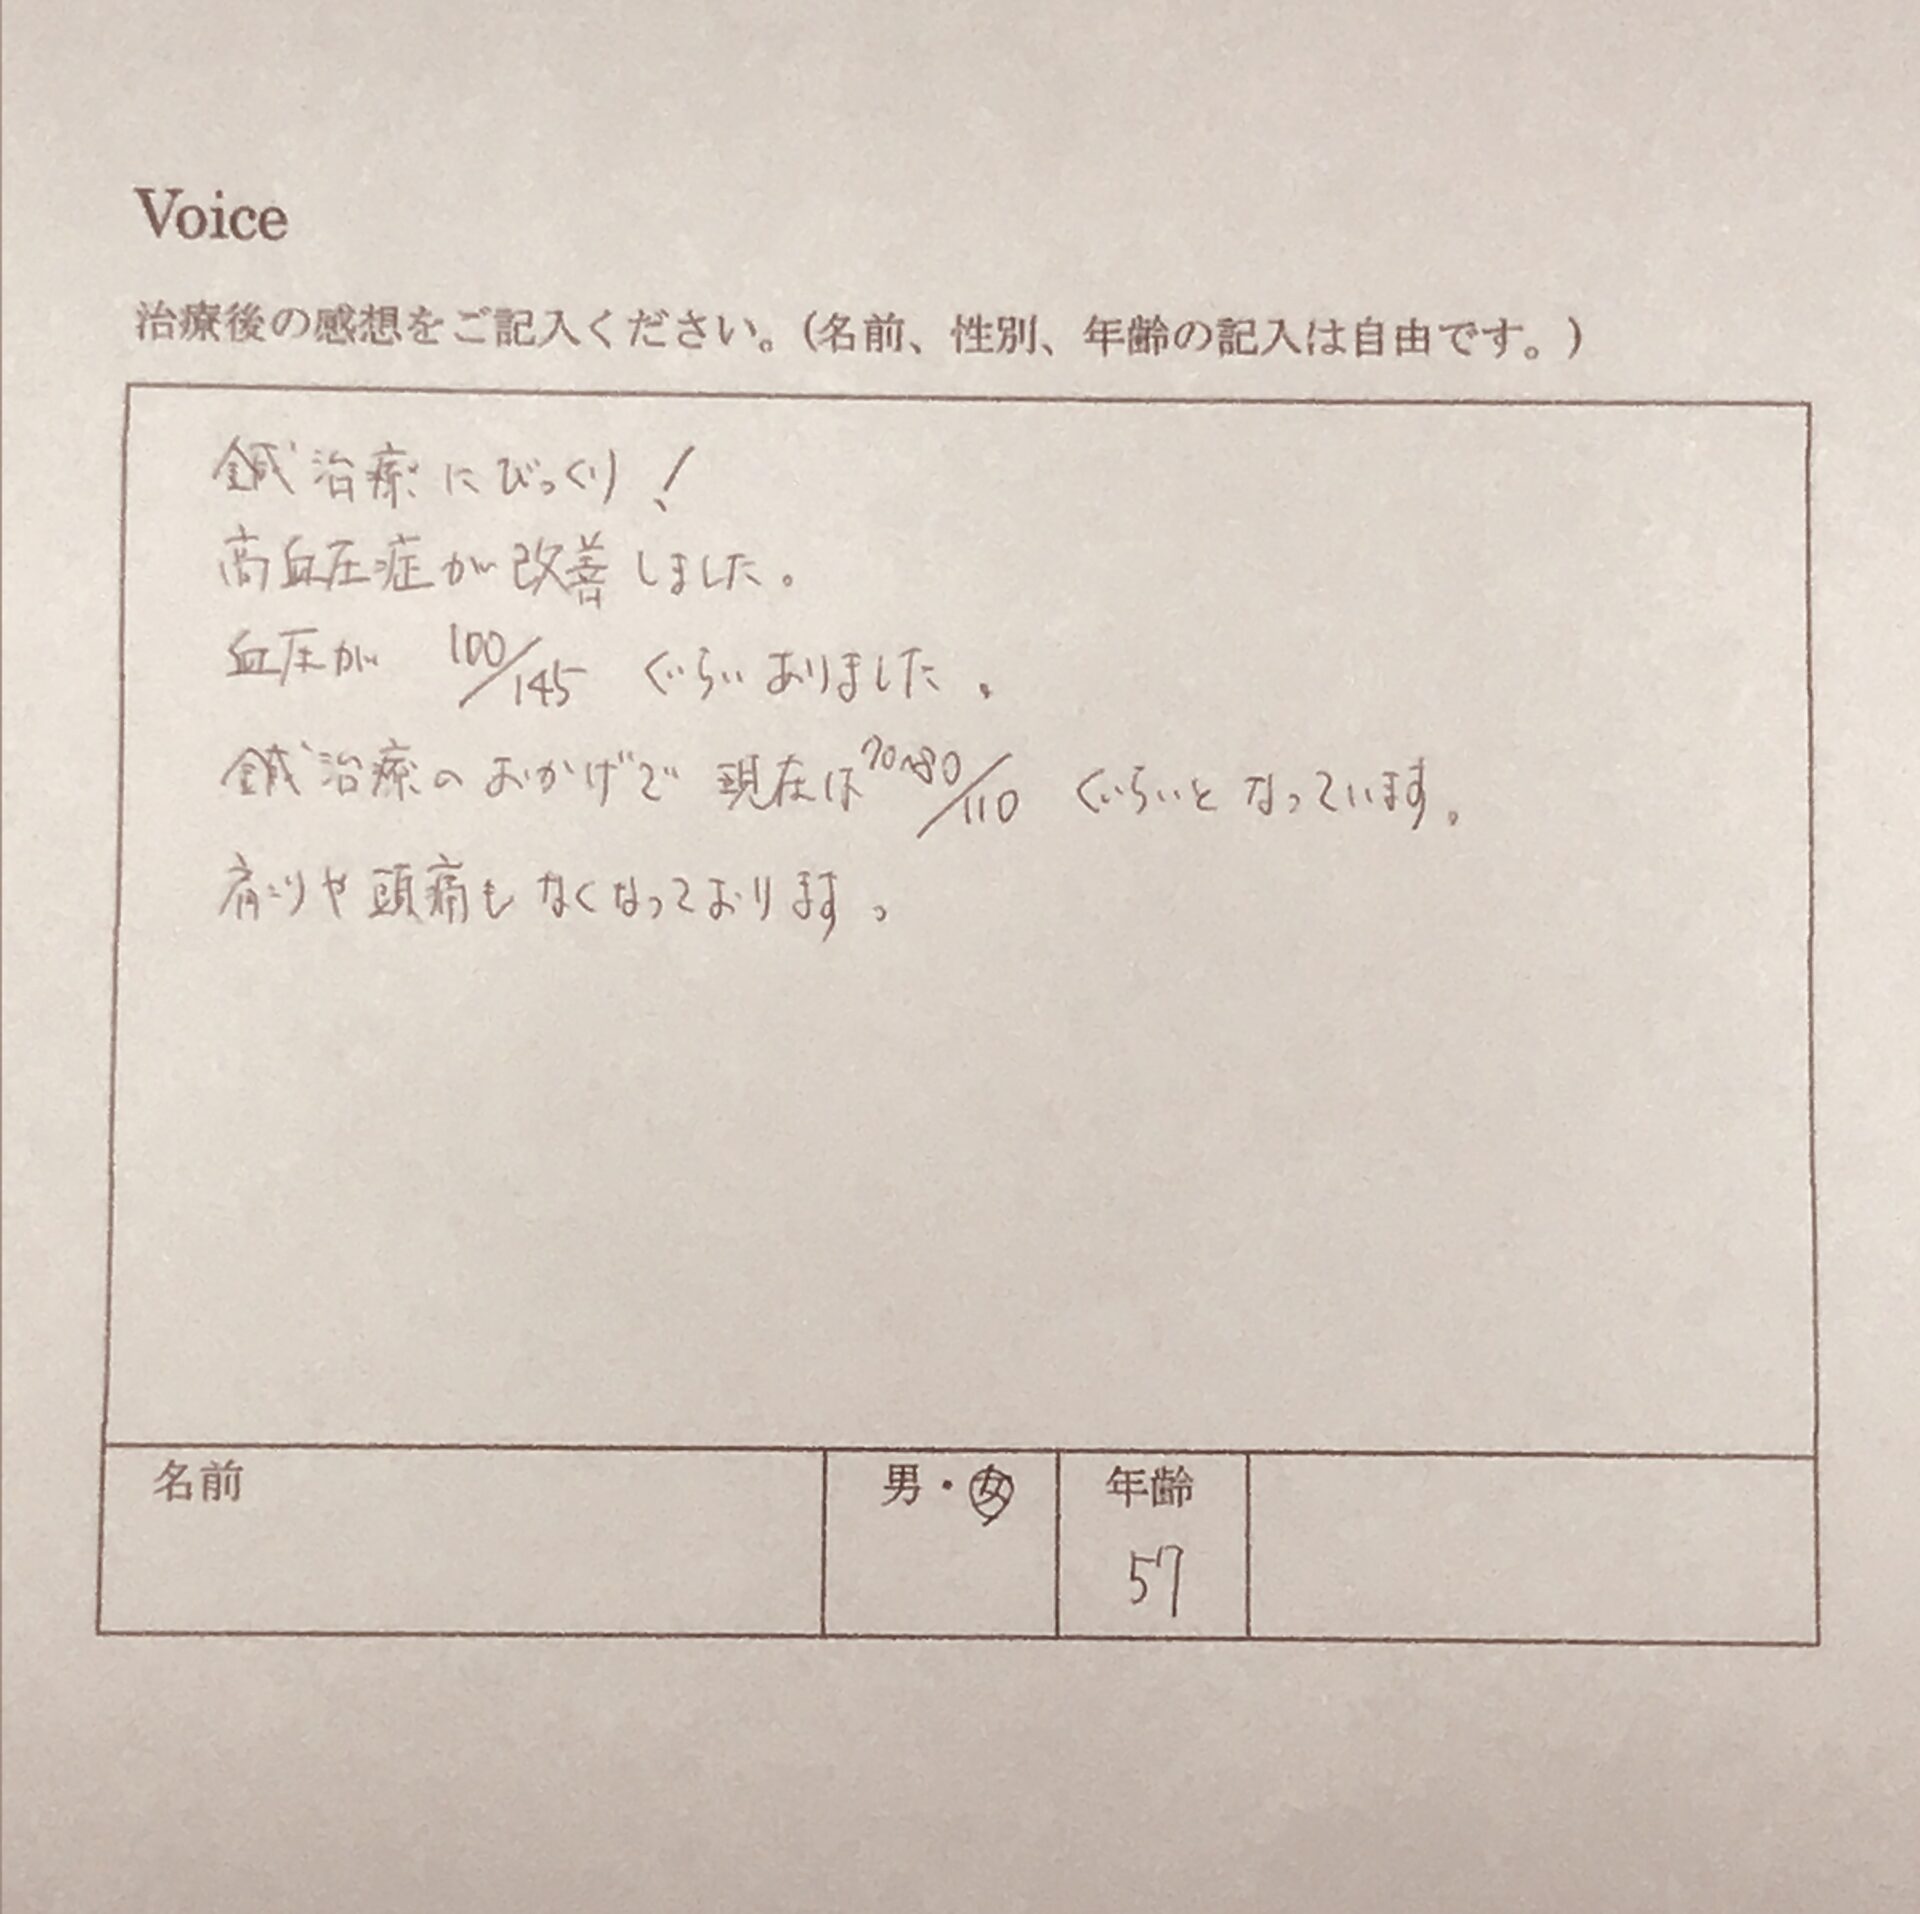 Voice
治療後の感想をご記入ください。(名前、性別、年齢の記入は自由です。)
鍼治療にびっくり!
高血圧症が改善しました。
血圧が 100/145 ぐらいありました。
鍼治療のおかげで 現在は 70~80/110 ぐらいとなっています。
肩こりや頭痛もなくなっております。
名前 男・女 年齢
57